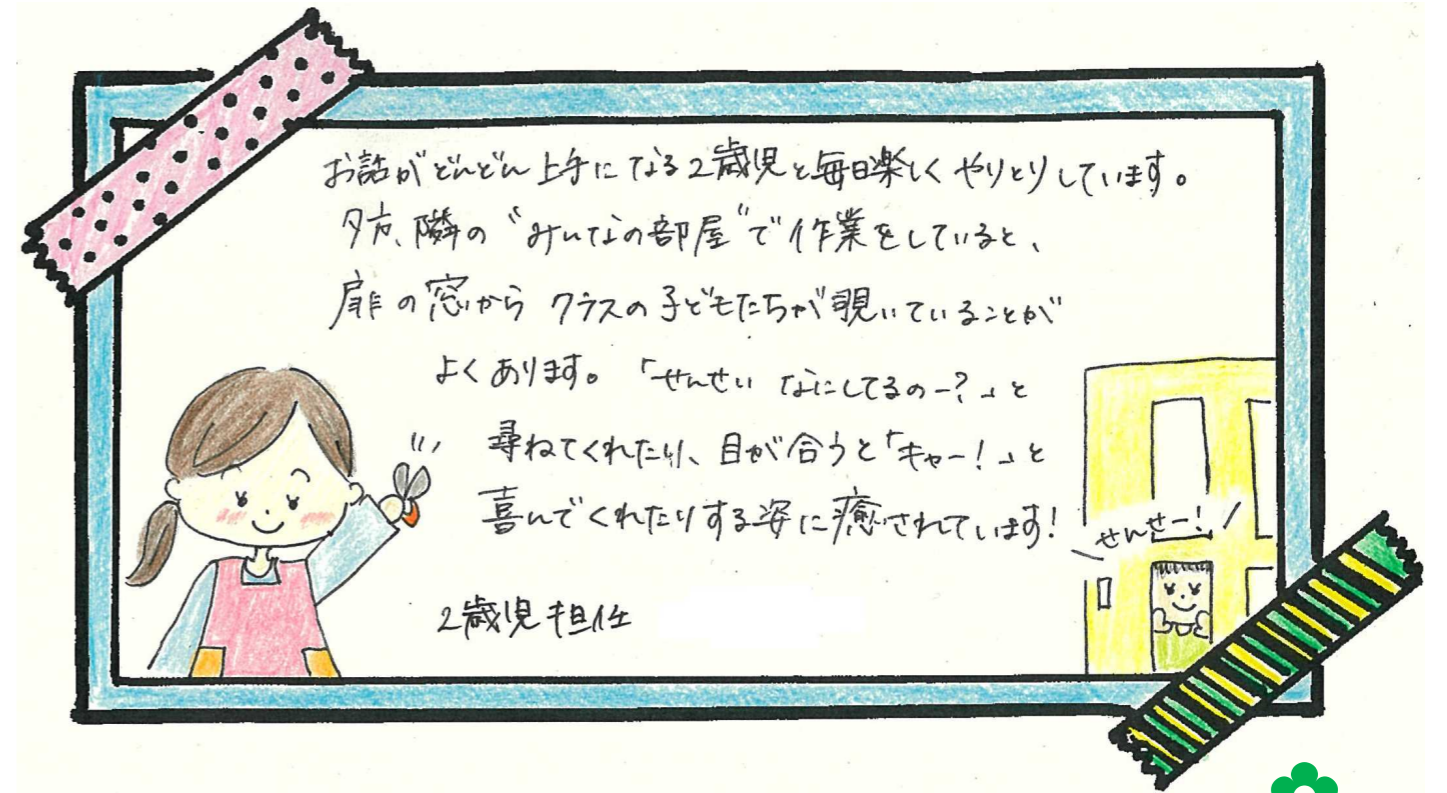 お話がどんどん上手になる2歳児と毎日楽しくやりとりしています。
夕方、隣の“みんなの部屋”で作業をしていると、
扉の窓から クラスの子どもたちが覗いていることが
よくあります。「せんせい なにしてるのー?」と
尋ねてくれたり、目が合うと「キャー!」と
喜んでくれたりする姿に癒されています!
せんせー!
2歳児担任